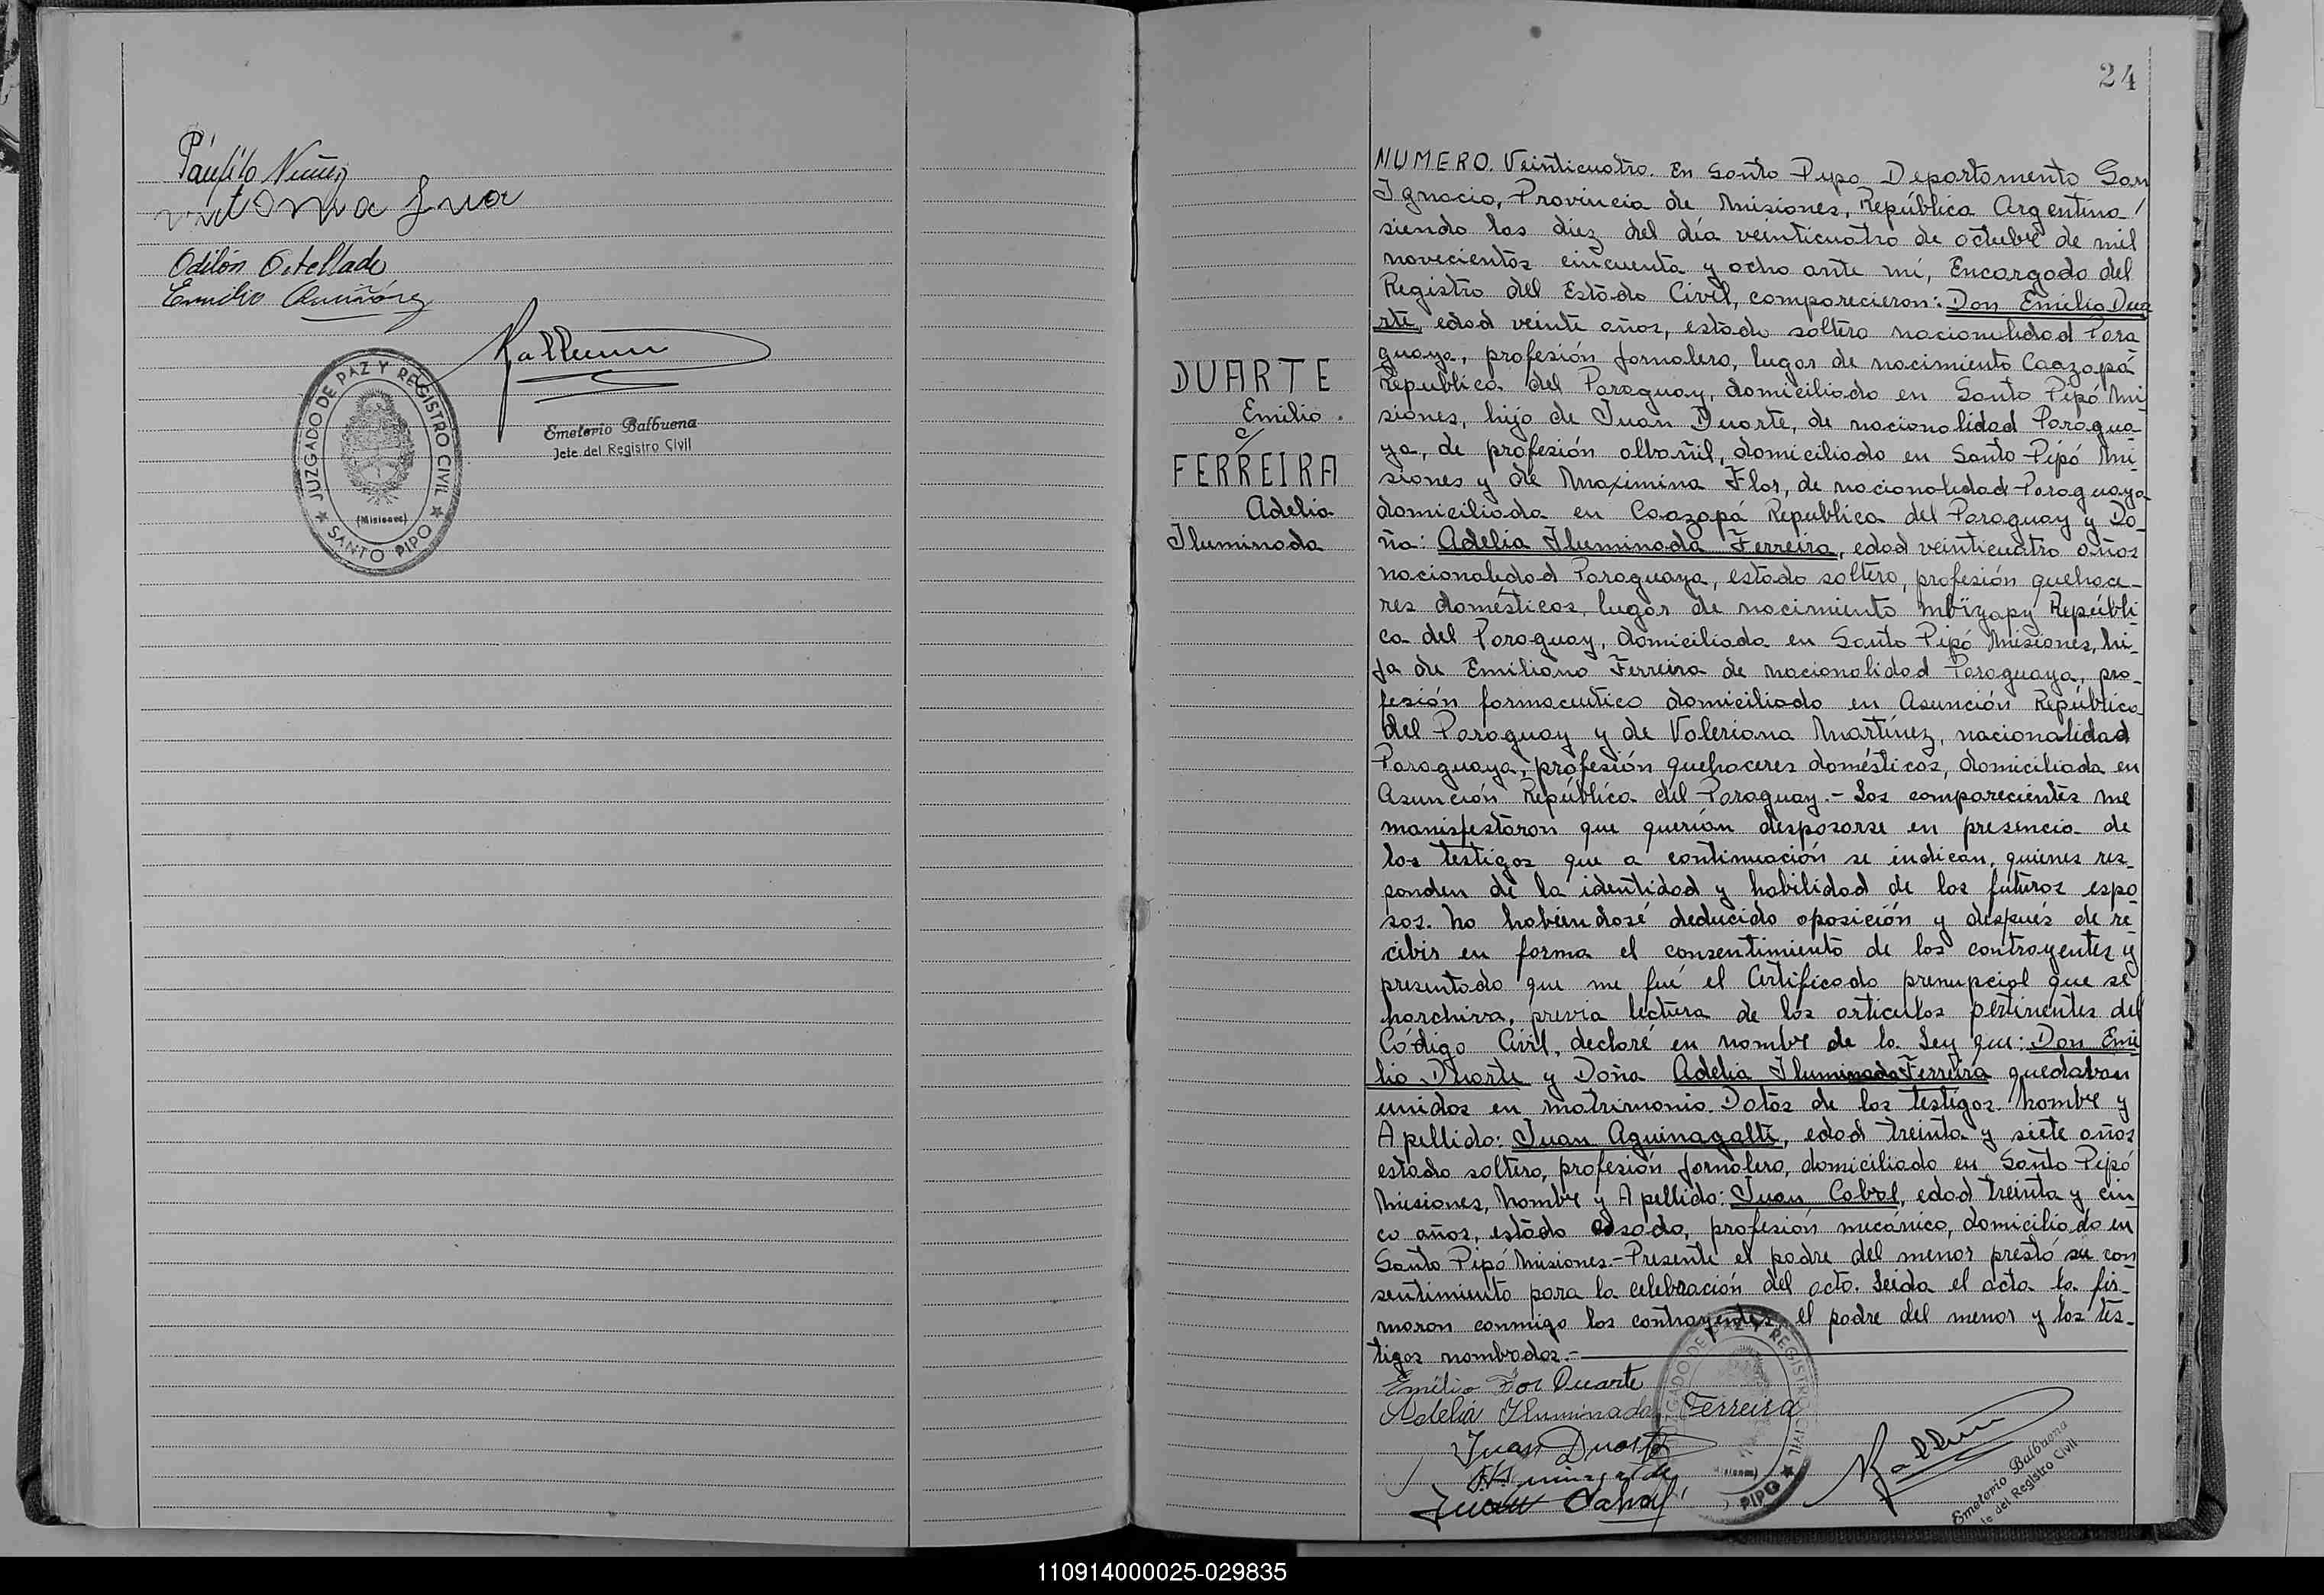 Pánfilo Nuñez
Odilón
Emilio Quiñónez
JUZGADO DE PAZ Y REGISTRO CIVIL
(Misiones)
SANTO PIPO
Emeterio Balbuena
Jefe del Registro Civil
24
DUARTE
Emilio
c/
FERREIRA
Adelia
Iluminada
NUMERO. Veinticuatro. En Santo Pipo Departamento San
Ignacio, Provincia de Misiones, República Argentina
siendo las diez del día veinticuatro de octubre de mil
novecientos cincuenta y ocho ante mí, Encargado del
Registro del Estado Civil, comparecieron: Don Emilio Dua
rte, edad veinte años, estado soltero nacionalidad Para
guaya, profesión jornalero, lugar de nacimiento Caazapá
República del Paraguay, domiciliado en Santo Pipó Mi
siones, hijo de Juan Duarte, de nacionalidad Paragua-
ya, de profesión albañil, domiciliado en Santo Pipó Mi-
siones y de Maximina Flor, de nacionalidad Paraguaya
domiciliada en Caazapá Republica del Paraguay y Do-
ña: Adelia Iluminada Ferreira, edad veinticuatro años
nacionalidad Paraguaya, estado soltera, profesión quehace-
res domésticos, lugar de nacimiento Mbÿzapy Repúbli
ca del Paraguay, domiciliada en Santo Pipó Misiones, hi-
ja de Emiliano Ferreira de nacionalidad Paraguaya, pro-
fesión farmaceutico domiciliado en Asunción República
del Paraguay y de Valeriana Martínez, nacionalidad
Paraguaya, profesión quehaceres domésticos, domiciliada en
Asunción República del Paraguay.- Los comparecientes me
manisfestaron que querían desposarse en presencia de
los testigos que a continuación se indican, quienes res-
ponden de la identidad y habilidad de los futuros espo
sos. No habiendosé deducido oposición y después de re
cibir en forma el consentimiento de los contrayentes y
presentado que me fué el Certificado prenupcial que se
harchiva, previa lectura de los articulos pertinentes del
Código Civil, declaré en nombre de la Ley que: Don Emi
lio Duarte y Doña Adelia Iluminada Ferreira quedaban
unidos en matrimonio. Datos de los testigos. Nombre y
Apellido: Juan Aguinagalte, edad treinta y siete años
estado soltero, profesión jornalero, domiciliado en Santo Pipó
Misiones, Nombre y Apellido: Juan Cabral, edad treinta y cin
co años, estado casado, profesión mecánico, domiciliado en
Santo Pipó Misiones.- Presente el padre del menor prestó su con
sentimiento para la celebración del acto. Leida el acta la fir-
maron conmigo los contrayentes, el padre del menor y los tes-
tigos nombrados.-
Emilio Flor Duarte
Adelia Iluminada Ferreira
Juan Duarte
Juan Cabral
JUZGADO DE PAZ Y REGISTRO CIVIL
(Misiones)
PIPO
Emeterio Balbuena
del Registro Civil
110914000025-029835